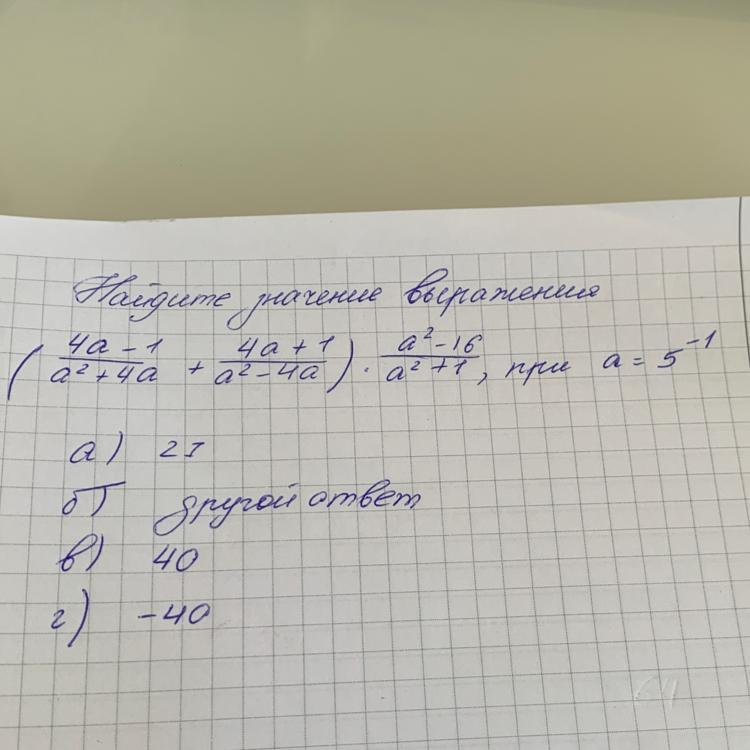 Найдите значение выражения
( 4a - 1 / a² + 4a + 4a + 1 / a² - 4a ) · a² - 16 / a² + 1, при a = 5⁻¹
а) 25
б) другой ответ
в) 40
г) -40